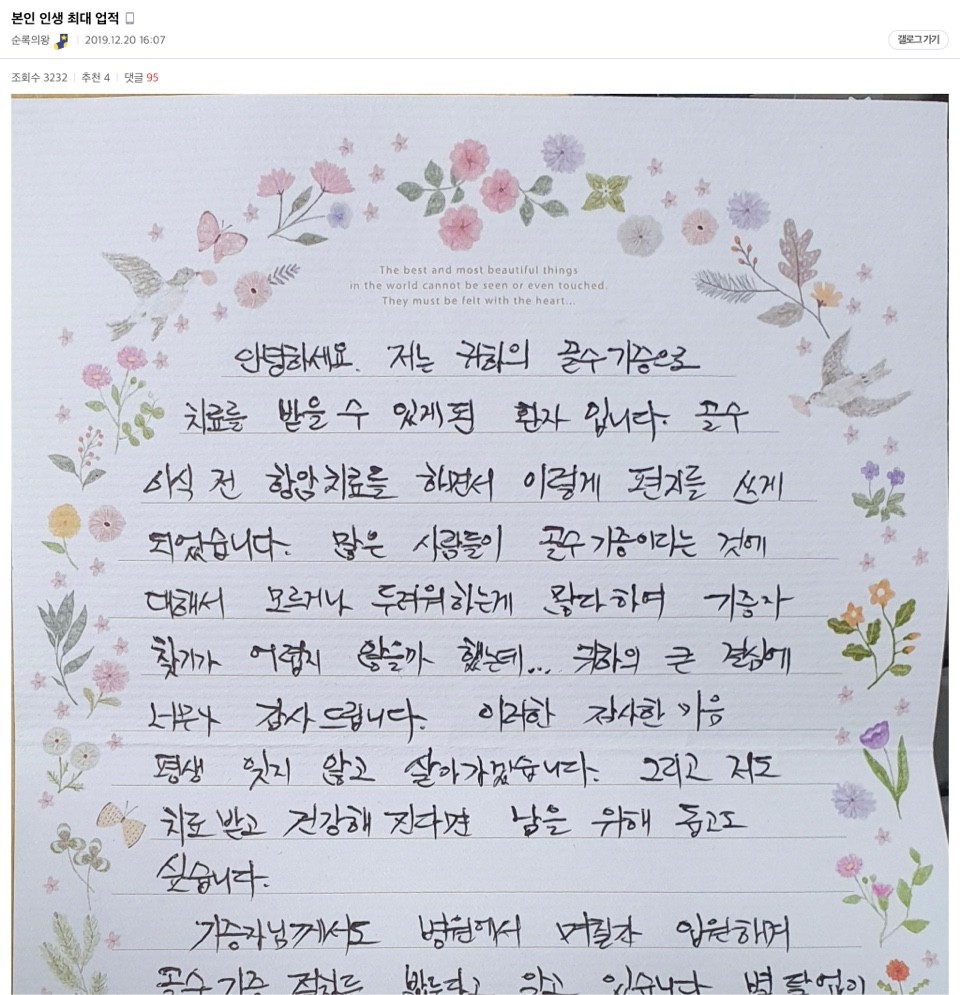 본인 인생 최대 업적
순록의왕 2019.12.20 16:07
갤로그 가기
조회수 3232 추천 4 댓글 95
The best and most beautiful things
in the world cannot be seen or even touched.
They must be felt with the heart...
안녕하세요. 저는 귀하의 골수기증으로
치료를 받을 수 있게 된 환자 입니다. 골수
이식 전 항암치료를 하면서 이렇게 편지를 쓰게
되었습니다. 많은 사람들이 골수기증이라는 것에
대해서 모르거나 두려워하는게 많다하여 기증자
찾기가 어렵지 않을까 했는데... 귀하의 큰 결심에
너무나 감사드립니다. 이러한 감사한 마음
평생 잊지 않고 살아가겠습니다. 그리고 저도
치료받고 건강해 진다면 남을 위해 돕고도
싶습니다.
기증자님께서도 병원에서 며칠간 입원하며
골수기증 절차를 받는다고 알고 있습니다 별 탈없이